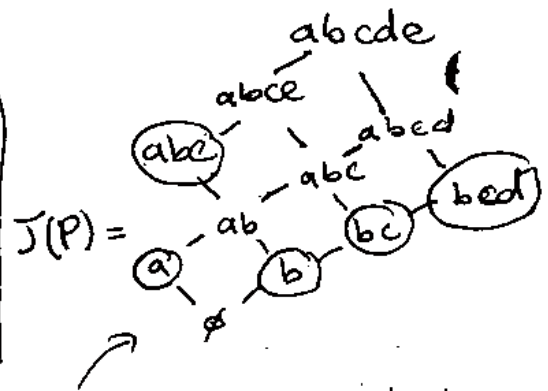 abcde
abce
abcd
abe
abc
bcd
J(P) =
ab
bc
a
b
ø